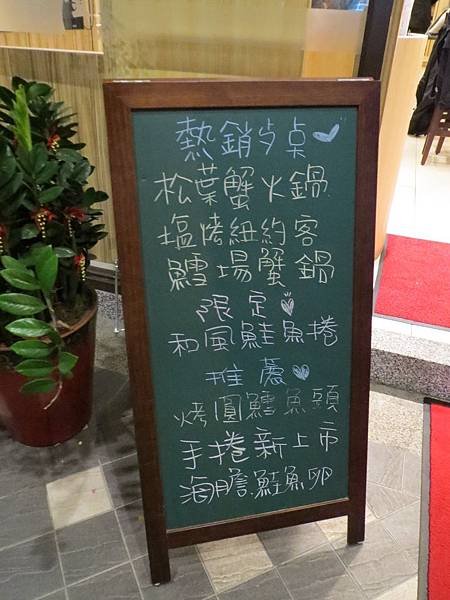 熱銷ㄉ桌
松葉蟹火鍋
塩烤紐約客
鱈場蟹鍋
限定
和風鮭魚捲
推薦
烤圓鱈魚頭
手捲新上市
海膽鮭魚卵